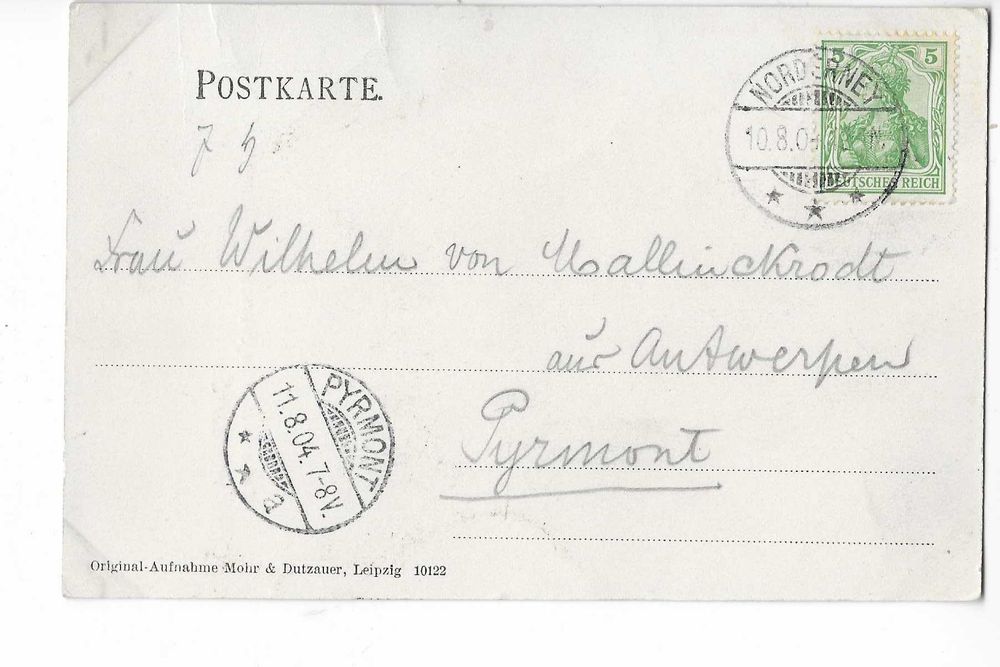 POSTKARTE.
5
DEUTSCHES REICH
NORDERNEY
10.8.04
Frau Wilhelm von Mallinckrodt
aus Antwerpen
Pyrmont
PYRMONT
11.8.04.7-8V.
a
Original-Aufnahme Mohr & Dutzauer, Leipzig 10122